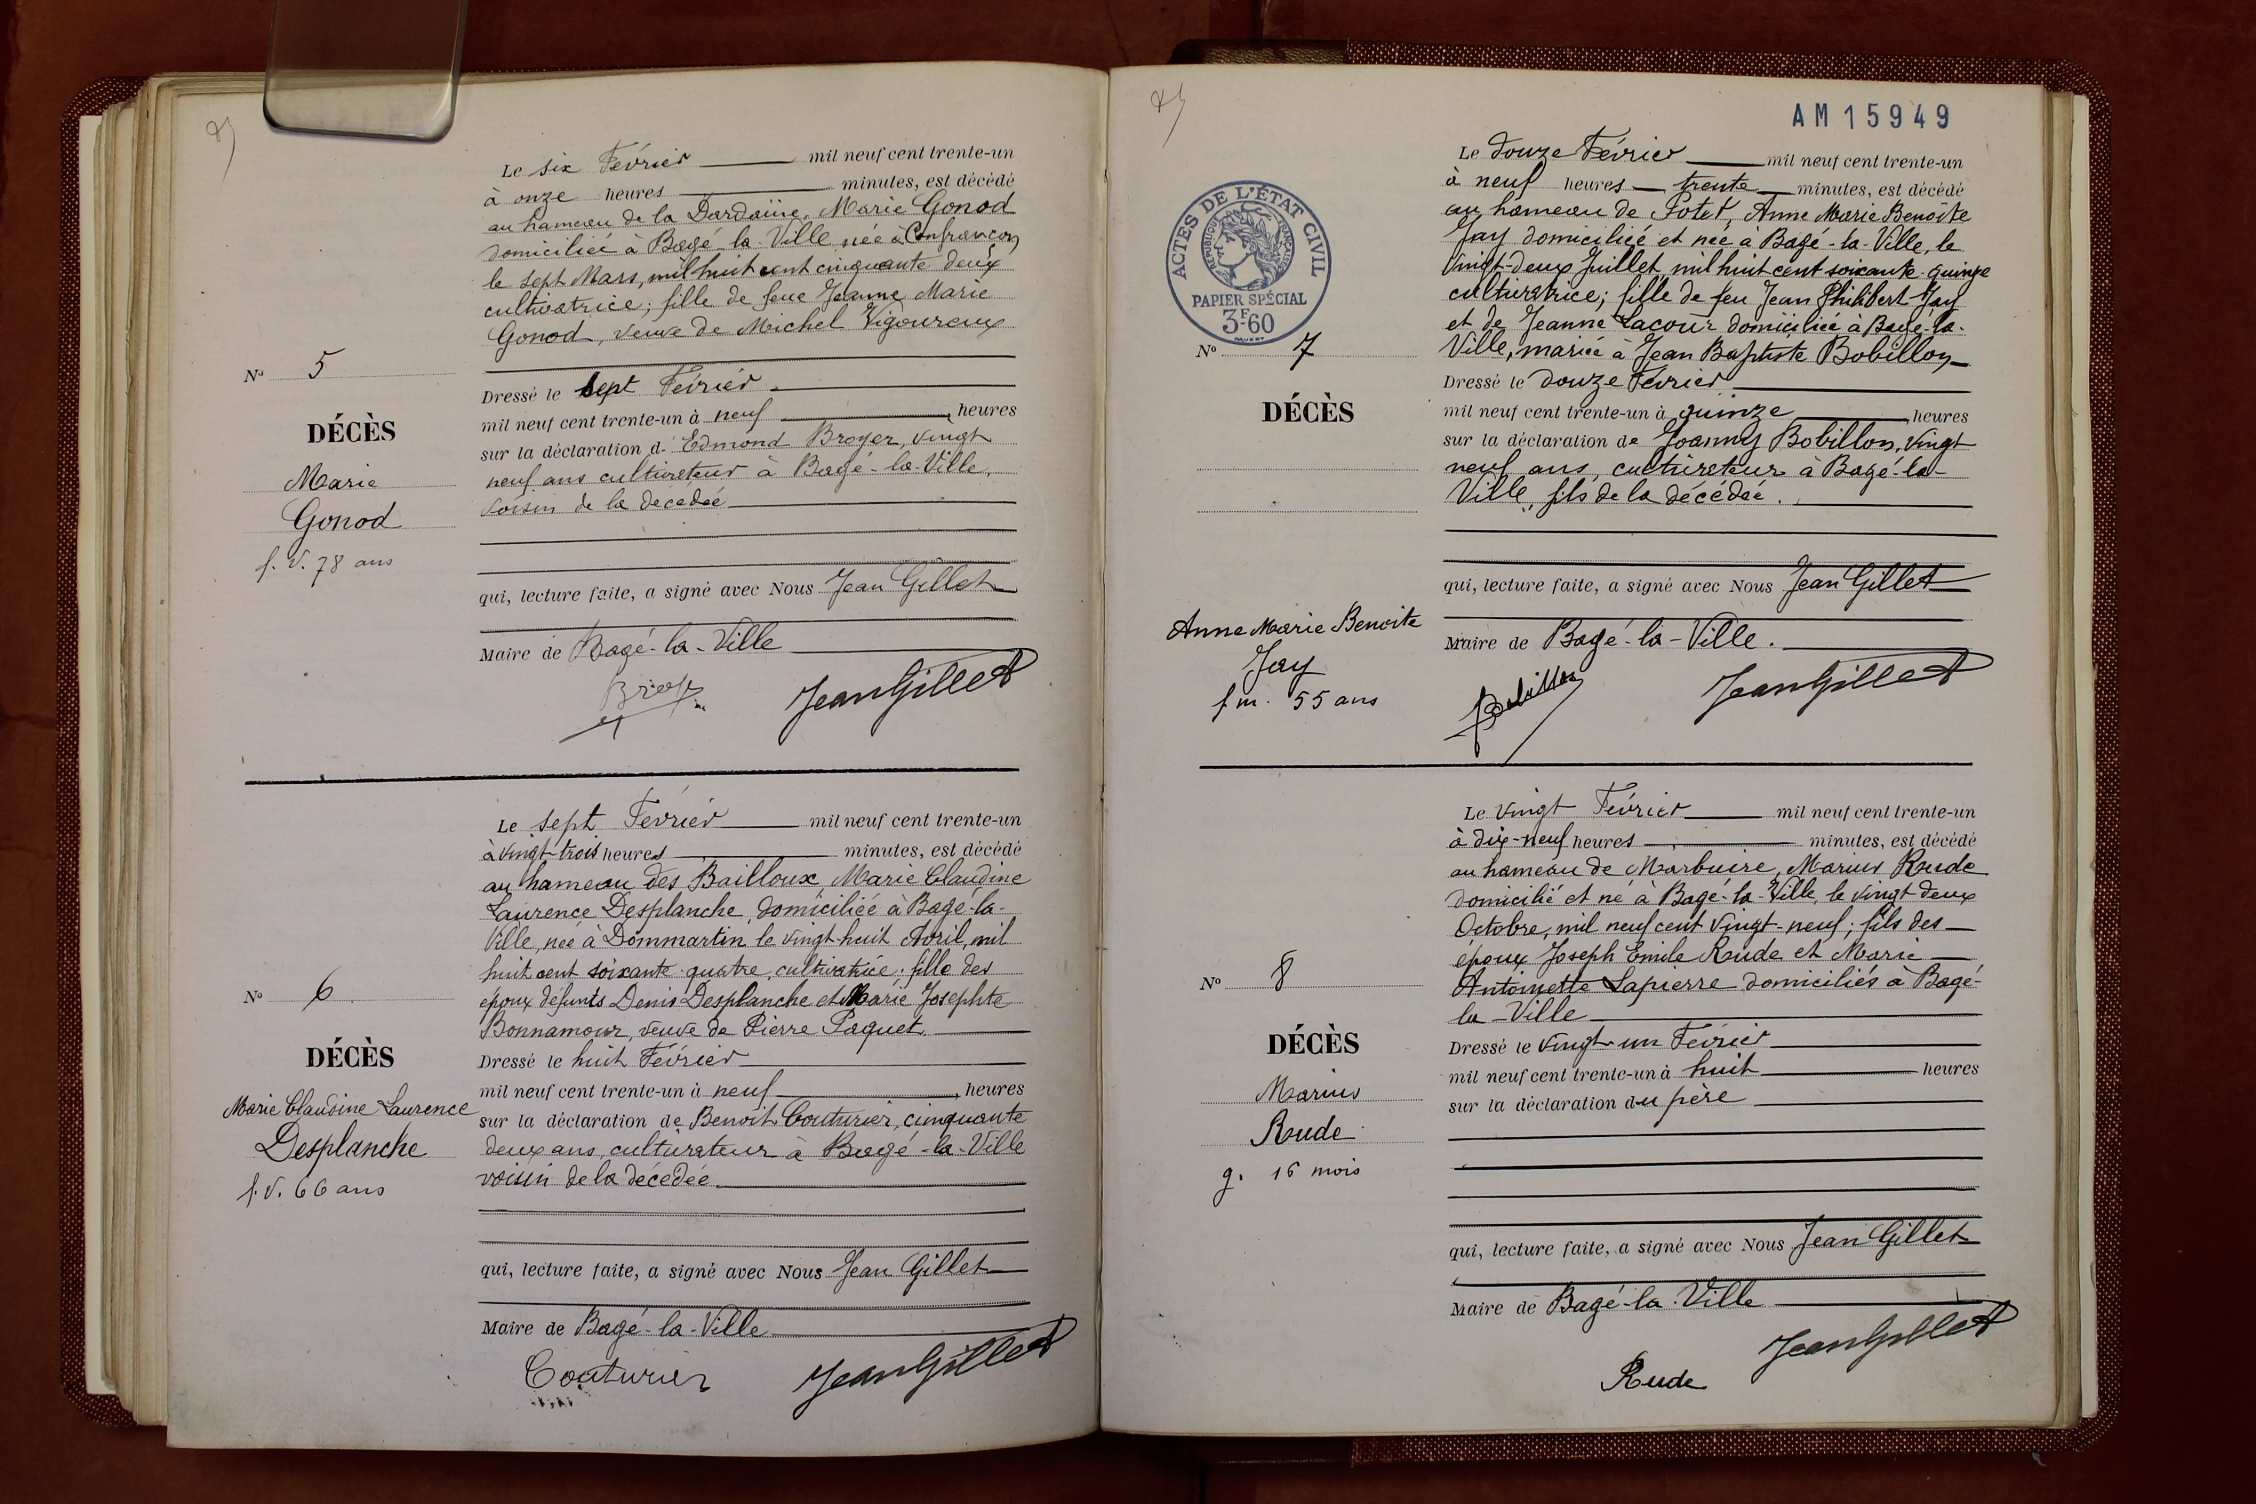 Le six Février mil neuf cent trente-un
à onze heures minutes, est décédé
au hameau de la Dardaine, Marie Gonod
domiciliée à Bagé-la-Ville née à Confrançon
le sept Mars, mil huit cent cinquante deux
cultivatrice; fille de feue Jeanne Marie
Gonod, veuve de Michel Vigoureux
N° 5
DÉCÈS
Marie
Gonod
f. V. 78 ans
Dressé le sept Février
mil neuf cent trente-un à neuf heures
sur la déclaration d. Edmond Broyer, vingt
neuf ans cultivateur à Bagé-la-Ville,
voisin de la décédée
qui, lecture faite, a signé avec Nous Jean Gillet
Maire de Bagé-la-Ville
Jean Gillet
Le sept Février mil neuf cent trente-un
à vingt-trois heures minutes, est décédé
au hameau des Bailloux, Marie Claudine
Laurence Desplanche, domiciliée à Bagé-la-
Ville, née à Dommartin le vingt huit Avril, mil
huit cent soixante-quatre, cultivatrice. fille des
époux défunts Denis Desplanche et Marie Josephte
Bonnamour, veuve de Pierre Paquet.
N° 6
DÉCÈS
Marie Claudine Laurence
Desplanche
f. V. 66 ans
Dressé le huit Février
mil neuf cent trente-un à neuf heures
sur la déclaration de Benoit Couturier, cinquante
deux ans, cultivateur à Bagé-la-Ville
voisin de la décédée.
qui, lecture faite, a signé avec Nous Jean Gillet
Maire de Bagé-la-Ville
Couturier Jean Gillet
AM15949
ACTES DE L'ÉTAT CIVIL
RÉPUBLIQUE FRANÇAISE
PAPIER SPÉCIAL
3F-60
Le douze Février mil neuf cent trente-un
à neuf heures trente minutes, est décédé
au hameau de Potet, Anne Marie Benoîte
Jay domiciliée et née à Bagé-la-Ville, le
vingt-deux Juillet, mil huit cent soixante-quinze
cultivatrice; fille de feu Jean Philibert Jay
et de Jeanne Lacour domiciliée à Bagé-la-
Ville, mariée à Jean Baptiste Bobillon
N° 7
DÉCÈS
Anne Marie Benoite
Jay
f m. 55 ans
Dressé le douze Février
mil neuf cent trente-un à quinze heures
sur la déclaration de Joanny Bobillon, vingt
neuf ans, cultivateur à Bagé-la-
Ville, fils de la décédée.
qui, lecture faite, a signé avec Nous Jean Gillet
Maire de Bagé-la-Ville.
Bobillon Jean Gillet
Le vingt Février mil neuf cent trente-un
à dix-neuf heures minutes, est décédé
au hameau de Marbuire, Marius Rude
domicilié et né à Bagé-la-Ville, le vingt deux
Octobre, mil neuf cent vingt-neuf; fils des
époux Joseph Emile Rude et Marie
Antoinette Lapierre domiciliés à Bagé-
la-Ville
N° 8
DÉCÈS
Marius
Rude
g. 16 mois
Dressé le vingt-un Février
mil neuf cent trente-un à huit heures
sur la déclaration du père
qui, lecture faite, a signé avec Nous Jean Gillet
Maire de Bagé-la-Ville
Jean Gillet
Rude